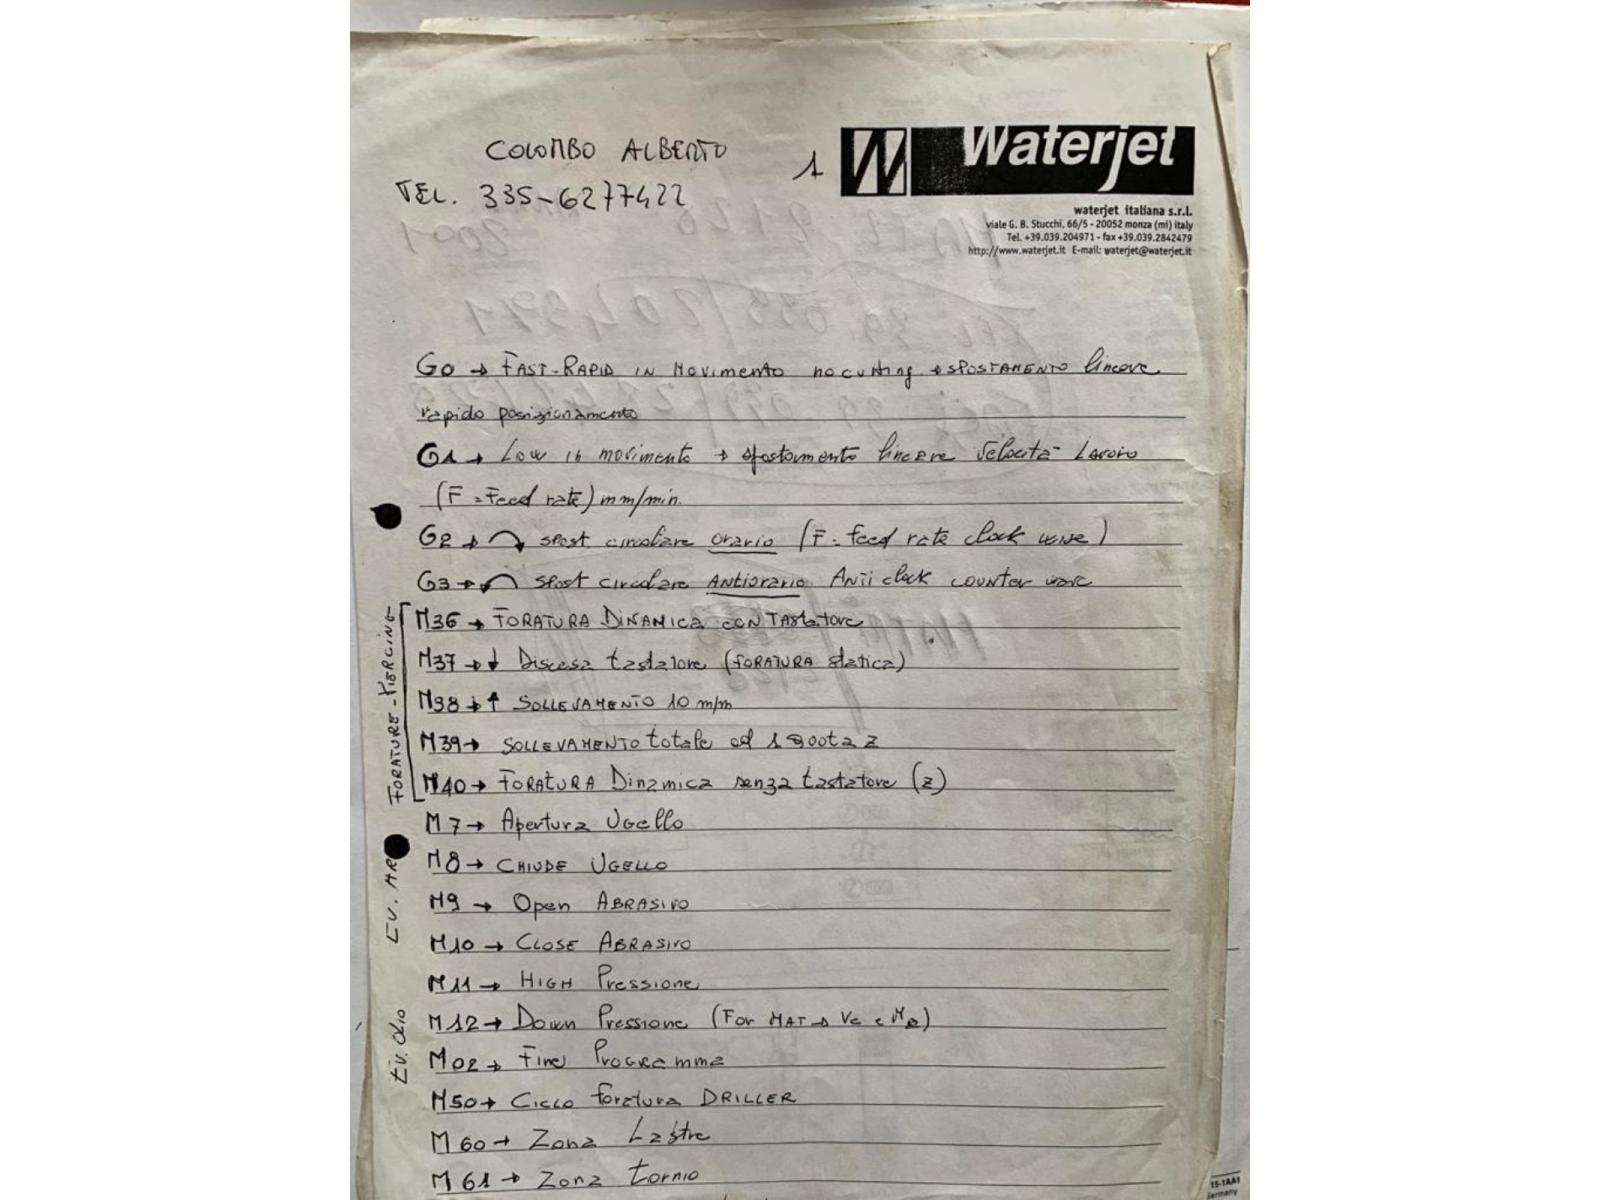 COLOMBO ALBERTO
TEL. 335-6277422
1
Waterjet
waterjet italiana s.r.l.
viale G. B. Stucchi, 66/5 - 20052 monza (mi) italy
Tel. +39.039.204971 - fax +39.039.2842479
http://www.waterjet.it E-mail: waterjet@waterjet.it
G0 → FAST-RAPID IN MOVIMENTO no cutting → SPOSTAMENTO lineare
rapido posizionamento
G1 → Low in movimento → spostamento lineare Velocità Lavoro
(F = Feed rate) mm/min.
G2 → spost circolare orario (F = feed rate clock wise)
G3 → spost circolare Antiorario Anti clock counter
M36 → FORATURA DINAMICA CON TAstatore
M37 → ↓ Discesa tastatore (FORATURA statica)
M38 → ↑ SOLLEVAMENTO 10 m/m
M39 → SOLLEVAMENTO totale ad 1 Quota z
M40 → FORATURA Dinamica senza tastatore (z)
FORATURE - PIERCING
M7 → Apertura Ugello
M8 → CHIUDE UGELLO
M9 → Open ABRASIVO
M10 → CLOSE ABRASIVO
EV. AR
M11 → HIGH Pressione
M12 → Down Pressione (For MAT →
M02 → Fine Programma
EV. Olio
M50 → Ciclo foratura DRILLER
M60 → Zona Lastre
M61 → Zona tornio
15-1AA1
Germany